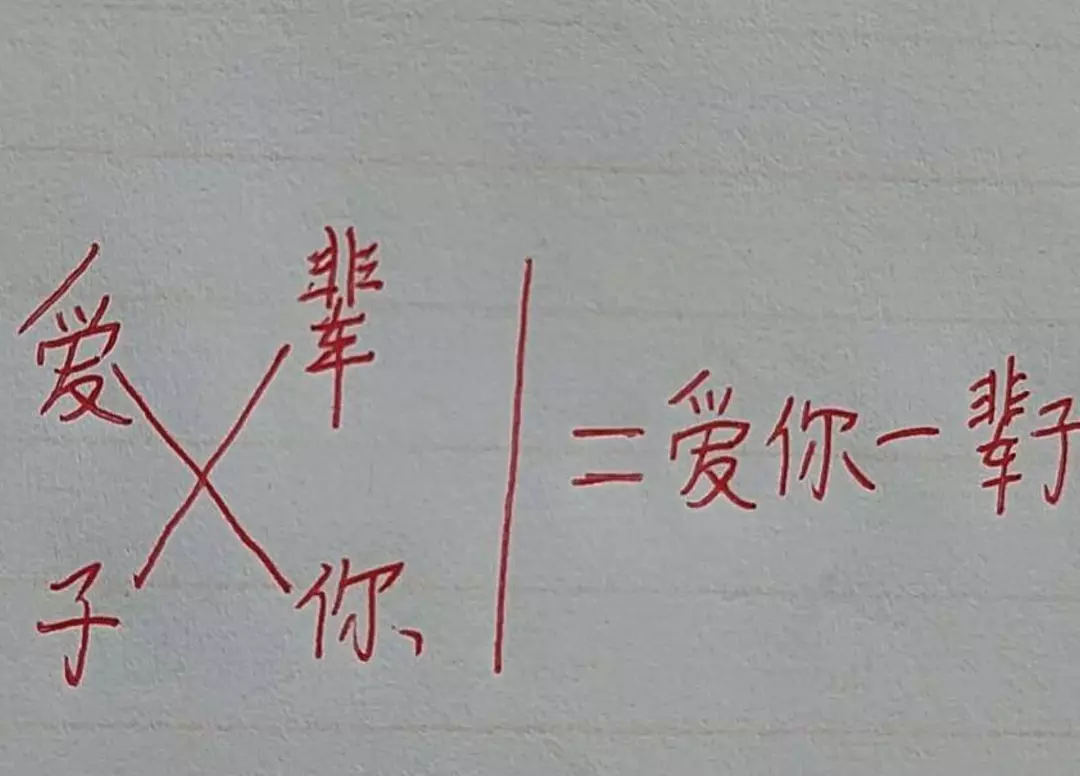 爱 辈
子 你、
=爱你一辈子